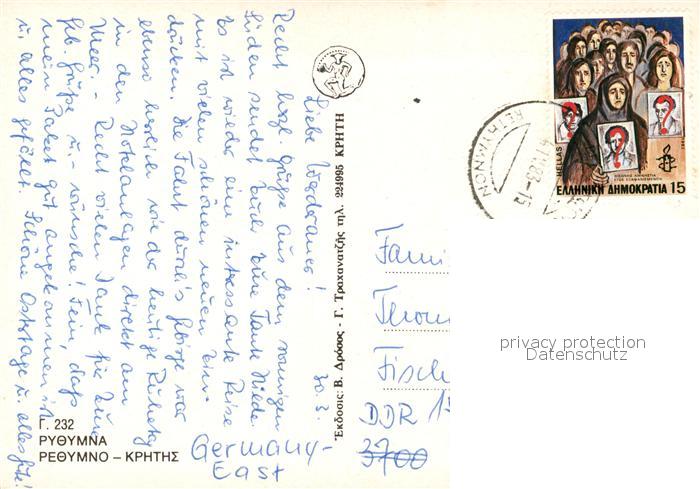 Liebe Werdauer! 30.3.
Recht herzl. Grüße aus dem sonnigen
Süden sendet Euch Eure Tante Friede
Es ist wieder eine interessante Reise
mit vielen schönen neuen Ein-
drücken. Die Fahrt durch's Gebirge war
ebenso herrlich wie der heutige Ruhetag
in den Hotelanlagen direkt am
Meer. - Recht vielen Dank für Eure
lb. Grüße u. - wünsche! Fein, daß
mein Paket gut angekommen ist
u. alles gefällt. Schöne Ostertage u. alles Gute!
Γ. 232
ΡΥΘΥΜΝΑ
ΡΕΘΥΜΝΟ – ΚΡΗΤΗΣ
Ἔκδοσις: Β. Δρόσος - Γ. Τραχανατζῆς τηλ. 224995 ΚΡΗΤΗ
HELLAS
ΔΙΕΘΝΗΣ ΑΜΝΗΣΤΙΑ
ΕΤΟΣ ΕΞΑΦΑΝΙΣΜΕΝΩΝ
ΕΛΛΗΝΙΚΗ ΔΗΜΟΚΡΑΤΙΑ 15
RETHYMNON
83-15
Fami
Thom
Fisch
DDR 15
3700
Germany-
East
privacy protection
Datenschutz